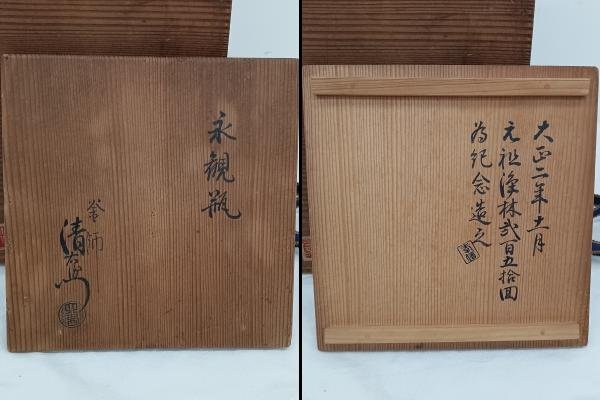 永觀瓶
釜師
清右衛門
大正二年十一月
元祖淨林弐百五拾回
為紀念造之